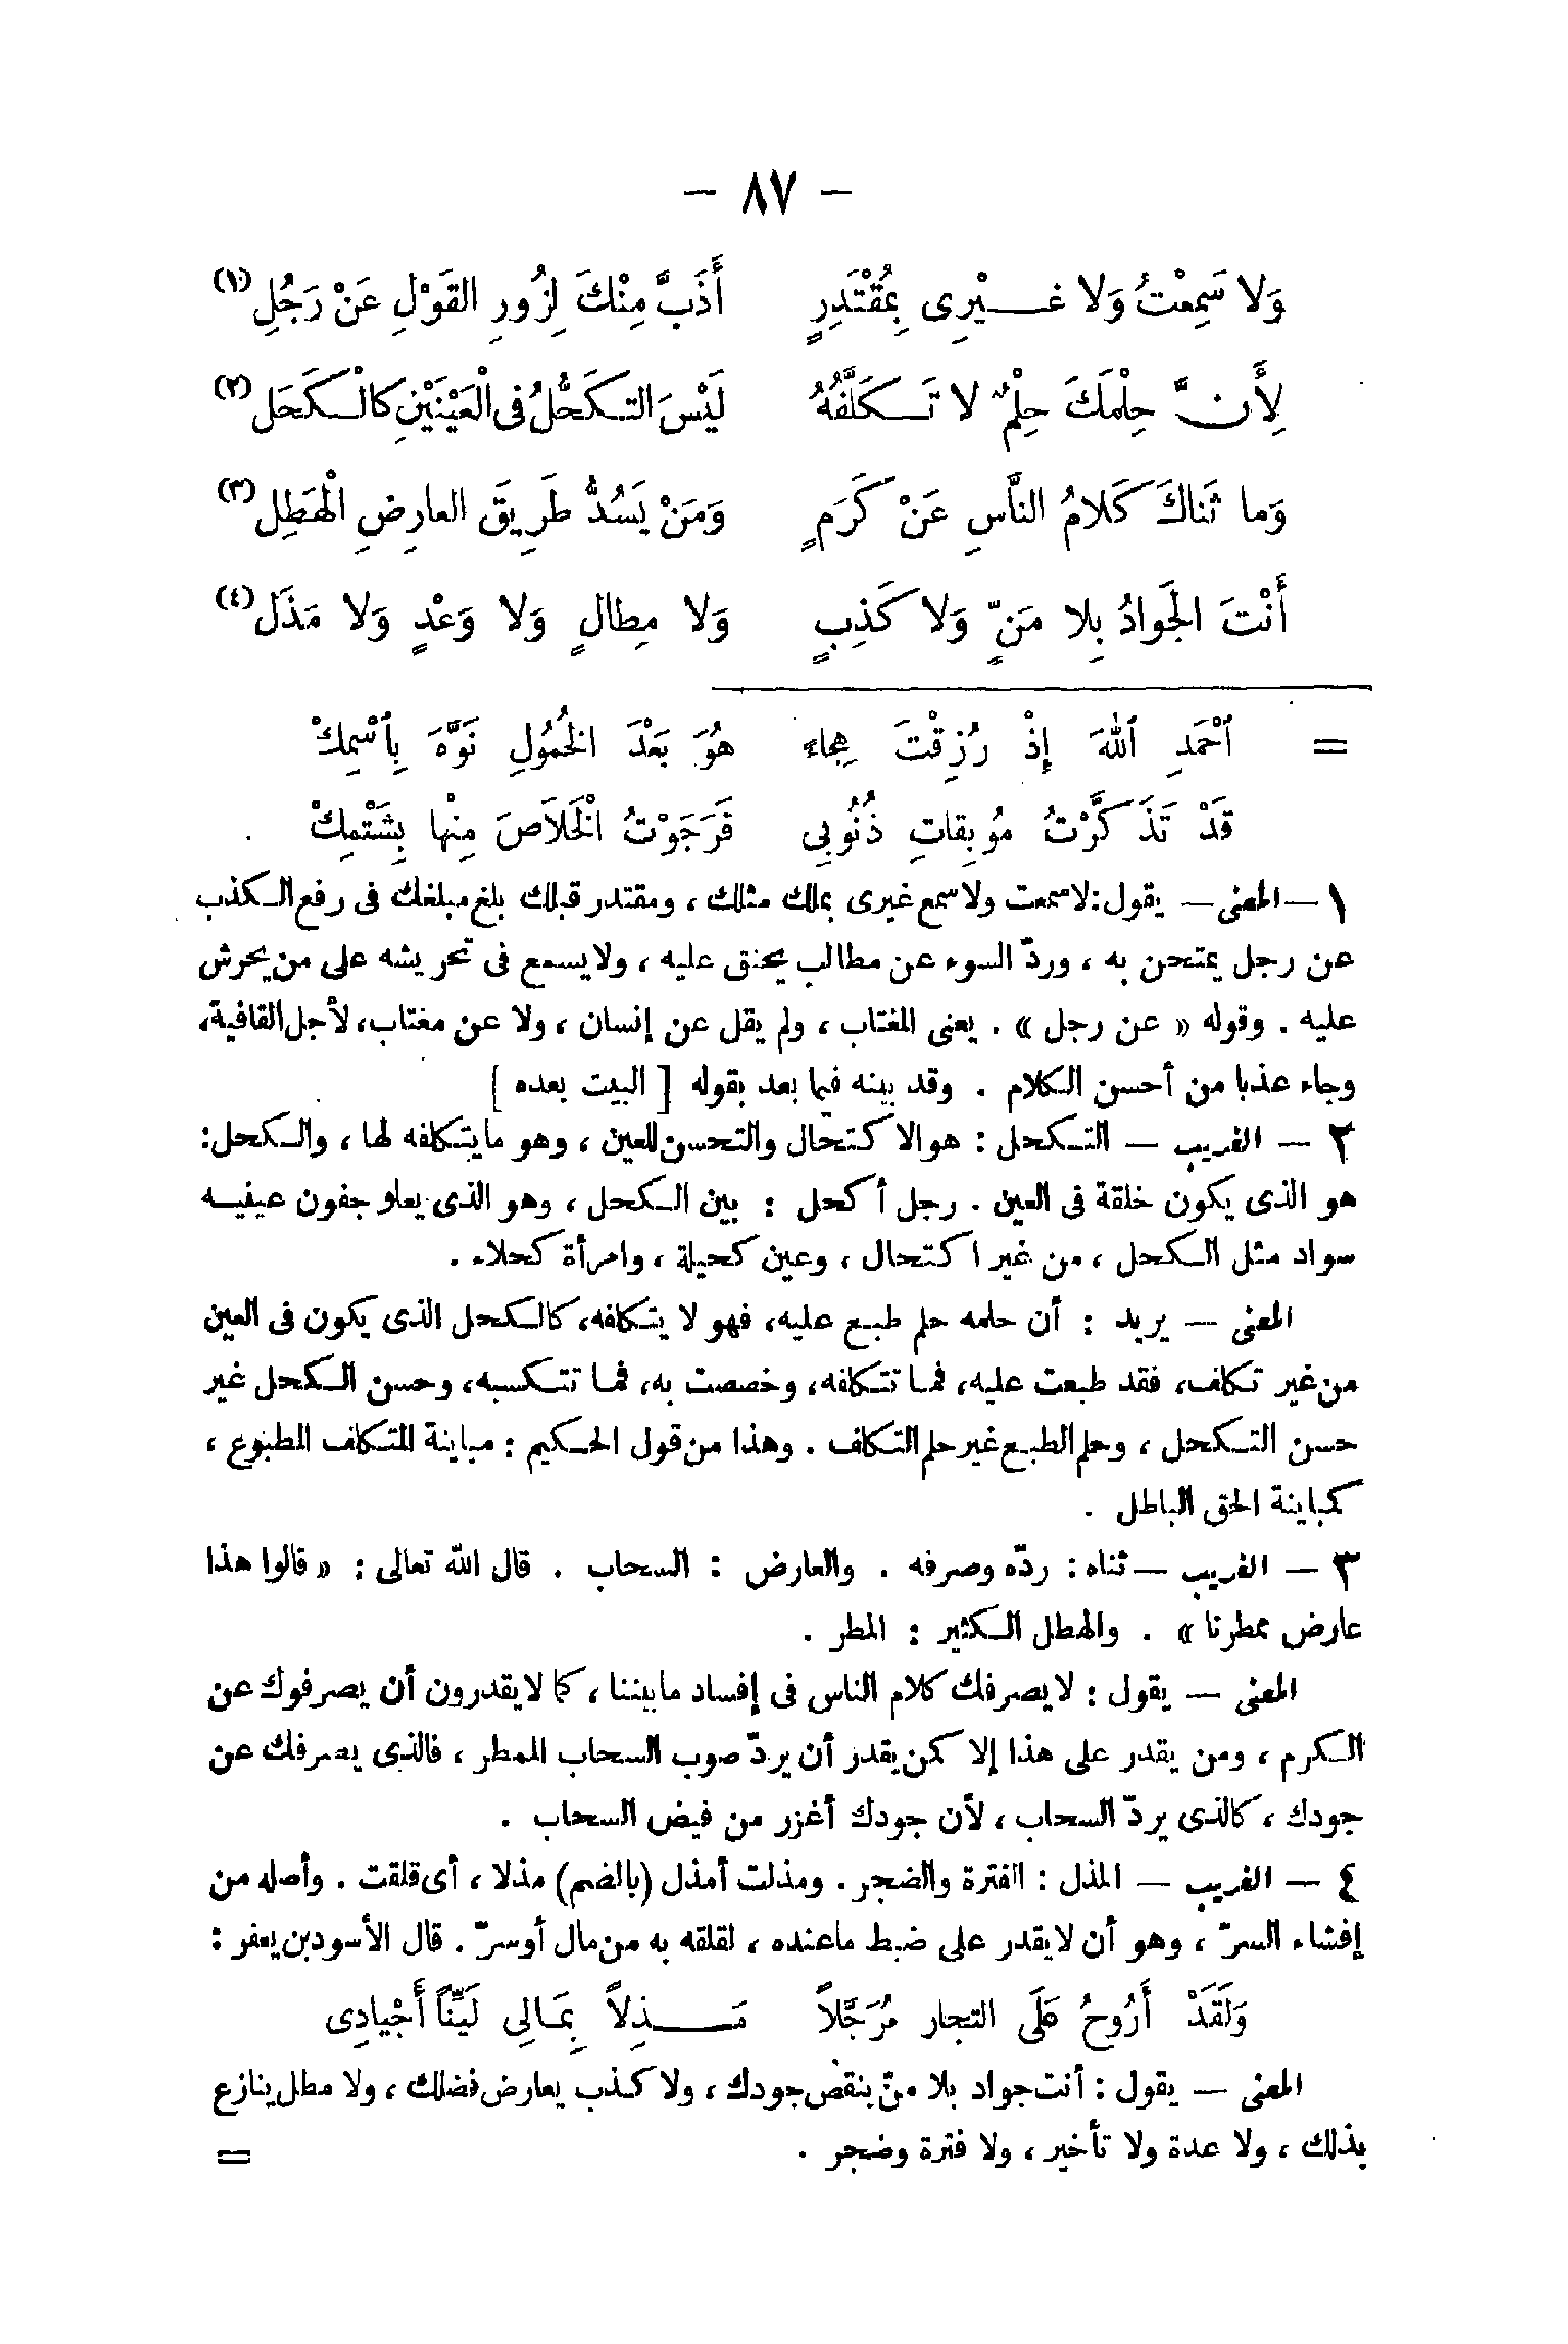 — ٨٧ —
وَلا سَمِعْتُ وَلا غَيْرِى بِمُقْتَدِرٍ أَذَبَّ مِنْكَ لِزُورِ القَوْلِ عَنْ رَجُلِ (١)
لِأَنَّ حِلْمَكَ حِلْمٌ لا تَكَلَّفُهُ لَيْسَ التكَحُّلُ فى الْعَيْنَيْنِ كالْكَحَلِ (٢)
وَما ثَناكَ كَلامُ النَّاسِ عَنْ كَرَمٍ وَمَنْ يَسُدُّ طَرِيقَ العارِضِ الْهَطِلِ (٣)
أَنْتَ الجَوادُ بِلا مَنٍّ وَلا كَذِبٍ وَلا مِطالٍ وَلا وَعْدٍ وَلا مَذَلِ (٤)
= اَحْمَدِ اللهَ إِذْ رُزِقْتَ هِجاء هُوَ بَعْدَ الخُمُولِ نَوَّهَ بِاَسْمِكْ
قَدْ تَذَكَّرْتُ مُوبِقاتِ ذُنُوبِى فَرَجَوْتُ الْخَلاَصَ مِنْها بِشَتْمِكْ
١ — المعنى — يقول: لا سمعت ولا سمع غيرى بملك مثلك ، ومقتدر قبلك بلغ مبلغك فى رفع الكذب
عن رجل يمتحن به ، وردّ السوء عن مطالب يحنق عليه ، ولا يسمع فى تحريشه على من يحرش
عليه . وقوله « عن رجل » . يعنى المغتاب ، ولم يقل عن إنسان ، ولا عن مغتاب، لأجل القافية،
وجاء عذبا من أحسن الكلام . وقد بينه فيما بعد بقوله [ البيت بعده ]
٢ — الغريب — التكحل : هو الاكتحال والتحسن للعين ، وهو ما يتكلفه لها ، والكحل:
هو الذى يكون خلقة فى العين . رجل أكحل : بين الكحل ، وهو الذى يعلو جفون عينيه
سواد مثل الكحل ، من غير اكتحال ، وعين كحيلة ، وامرأة كحلاء .
المعنى — يريد : أن حلمه حلم طبع عليه، فهو لا يتكلفه، كالكحل الذى يكون فى العين
من غير تكلف، فقد طبعت عليه، فما تتكلفه، وخصصت به، فما تتكسبه، وحسن الكحل غير
حسن التكحل ، وحلم الطبع غير حلم التكلف . وهذا من قول الحكيم : مباينة المتكلف المطبوع ،
كمباينة الحق الباطل .
٣ — الغريب — ثناه : ردّه وصرفه . والعارض : السحاب . قال الله تعالى : « قالوا هذا
عارض ممطرنا » . والهطل الكثير : المطر .
المعنى — يقول : لا يصرفك كلام الناس فى إفساد ما بيننا ، كما لا يقدرون أن يصرفوك عن
الكرم ، ومن يقدر على هذا إلا كمن يقدر أن يردّ صوب السحاب الممطر ، فالذى يصرفك عن
جودك ، كالذى يردّ السحاب ، لأن جودك أغزر من فيض السحاب .
٤ — الغريب — المذل : الفترة والضجر . ومذلت أمذل (بالضم) مذلا ، أى قلقت . وأصله من
إفشاء السرّ ، وهو أن لا يقدر على ضبط ما عنده ، لقلقه به من مال أو سرّ . قال الأسود بن يعفر :
وَلَقَدْ أَرُوحُ عَلَى التجار مُرَجَّلاً مَذِلاً بِمَالِى لَيِّناً أَجْيادِى
المعنى — يقول : أنت جواد بلا منّ ينقص جودك ، ولا كذب يعارض فضلك ، ولا مطل ينازع
بذلك ، ولا عدة ولا تأخير ، ولا فترة وضجر . =